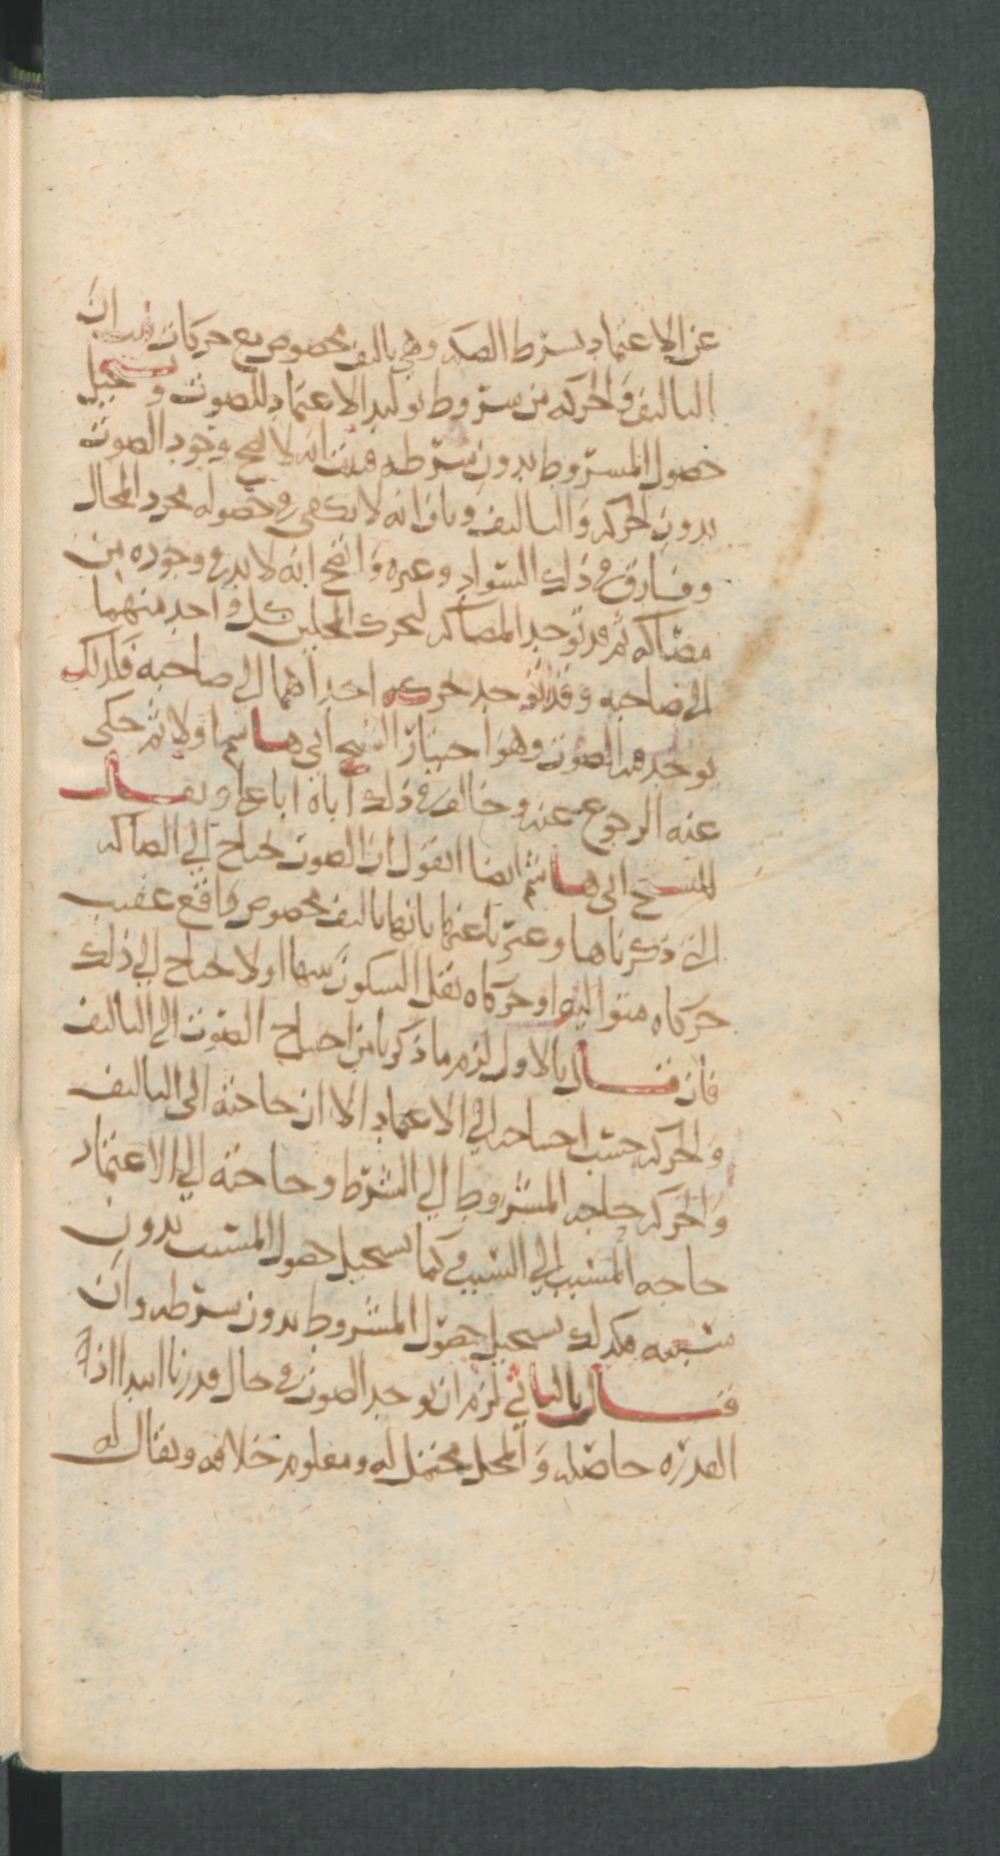 عن الاعتماد بشرط الصكه وهي تاليف مخصوص مع حركات ثبت ان
التاليف والحركه من شروط توليد الاعتماد للصوت ويستحيل
حصول المشروط بدون شرطه فثبت انه لا يصح وجود الصوت
بدون الحركه والتاليف وبان انه لا يكفي في حصوله مجرد المحال
وفارق في ذلك السواد وغيره واتضح انه لا بد في وجوده من
مصاكه ثم قد توجد المصاكه لتحرك المحلين كل واحد منهما
الى صاحبه وقد توجد حركه احداهما الى صاحبه فلذلك
يوجد الصوت وهو اختيار الشيخ ابي هاشم اولا ثم حكى
عنه الرجوع عنه وخالف في ذلك اباه ابا علي ويقال
للشيخ ابي هاشم ايضا اتقول ان الصوت يحتاج الى الصاكه
التي ذكرناها وعبرنا عنها بانها تاليف مخصوص واقع عقيب
حركاه متواليه او حركاه تقل السكون بينها اولا يحتاج الى ذلك
فان قال بالاول لزم ما ذكرنا من احتياج الصوت الى التاليف
والحركه حسب احتياجه الى الاعتماد الا ان حاجته الى التاليف
والحركه حاجه المشروط الى الشرط وحاجته الى الاعتماد
حاجه المسبب الى السبب فكما يستحيل حصول المسبب بدون
سببه فكذلك يستحيل حصول المشروط بدون شرطه وان
قال بالثاني لزم ان يوجد الصوت في حال قدرنا ابتدا اذ
القدره حاصله والمحل محتمل له ومعلوم خلافه ويقال له